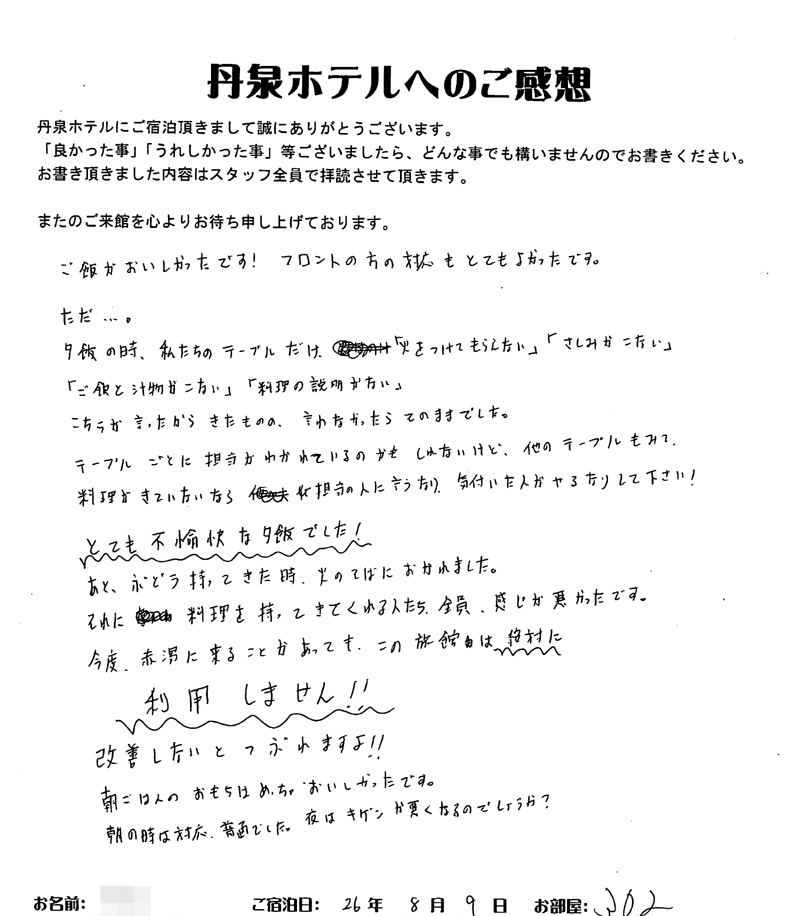 丹泉ホテルへのご感想
丹泉ホテルにご宿泊頂きまして誠にありがとうございます。
「良かった事」「うれしかった事」等ございましたら、どんな事でも構いませんのでお書きください。
お書き頂きました内容はスタッフ全員で拝読させて頂きます。
またのご来館を心よりお待ち申し上げております。
ご飯がおいしかったです! フロントの方の対応もとてもよかったです。
ただ…。
夕飯の時、私たちのテーブルだけ、「火をつけてもらえない」「さしみがこない」
「ご飯と汁物がこない」「料理の説明がない」
こちらが言ったからきたものの、言わなかったらそのままでした。
テーブルごとに担当がわかれているのかもしれないけど、他のテーブルもみて、
料理がきていないなら 担当の人に言うなり、気付いた人がやるなりして下さい!
とても不愉快な夕飯でした!
あと、ぶどう持ってきた時、火のそばにおかれました。
それに 料理を持ってきてくれる人たち、全員、感じが悪かったです。
今度、赤湯に来ることがあっても、この旅館には絶対に
利用しません!!
改善しないとつぶれますよ!!
朝ごはんのおもちはめっちゃおいしかったです。
朝の時は対応、普通でした。夜はキゲンが悪くなるのでしょうか?
お名前: ご宿泊日: 26年 8月 9日 お部屋: 302